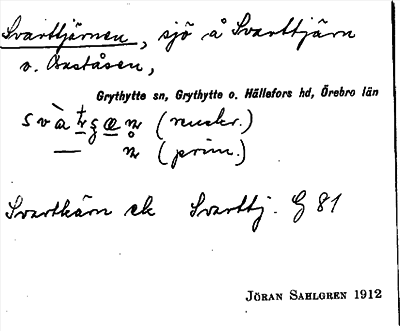 Svarttjärnen, sjö å Svarttjärn
v. Oxståsen,
Grythytte sn, Grythytte o. Hällefors hd, Örebro län
(prim.)
Svartkärn ek Svarttj. G 81
JÖRAN SAHLGREN 1912